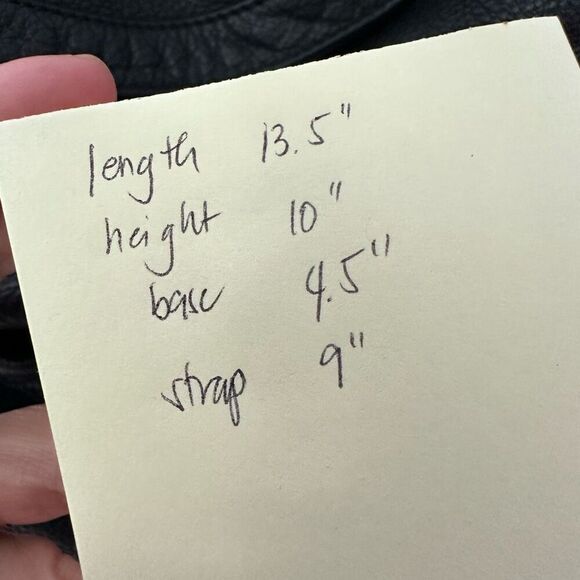 length 13.5"
height 10"
base 4.5"
strap 9"